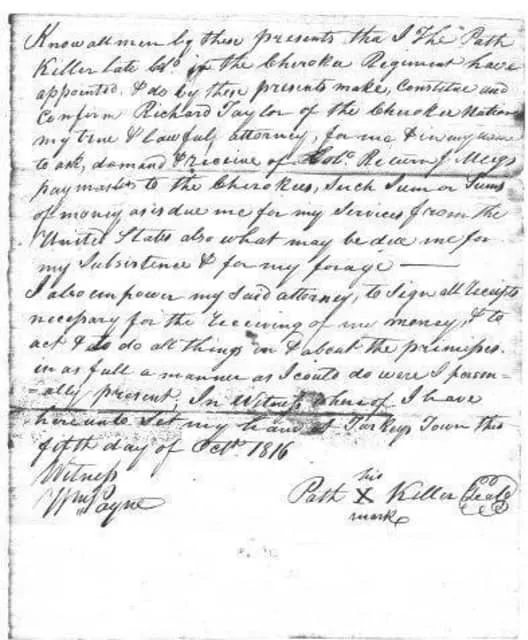 Know all men by these presents that I The Path
Killer late Col.o in the Cheroke Regiment have
appointed & do by these presents make, Constitue and
Confirm Richard Taylor of the Cherokee Nation
my true & lawful, attorney, for me & in my name
to ask, demand & receive of Col.o Return J Meigs
paymaster to the Cherokees, Such Sum or Sums
of money as is due me for my Services from the
United States also what may be due me for
my Subsistence & for my forage —
I also empower my Said attorney, to Sign all receipts
necessary for the receiving of my money, & to
act & to do all things in & about the premises
in as full a manner as I could do were I person-
-ally present, In Witness whereof I have
hereunto Set my hand at Turkeys Town this
fifth day of Oct.r 1816
Witness
Wm Payne
Path his X mark Killer Seal